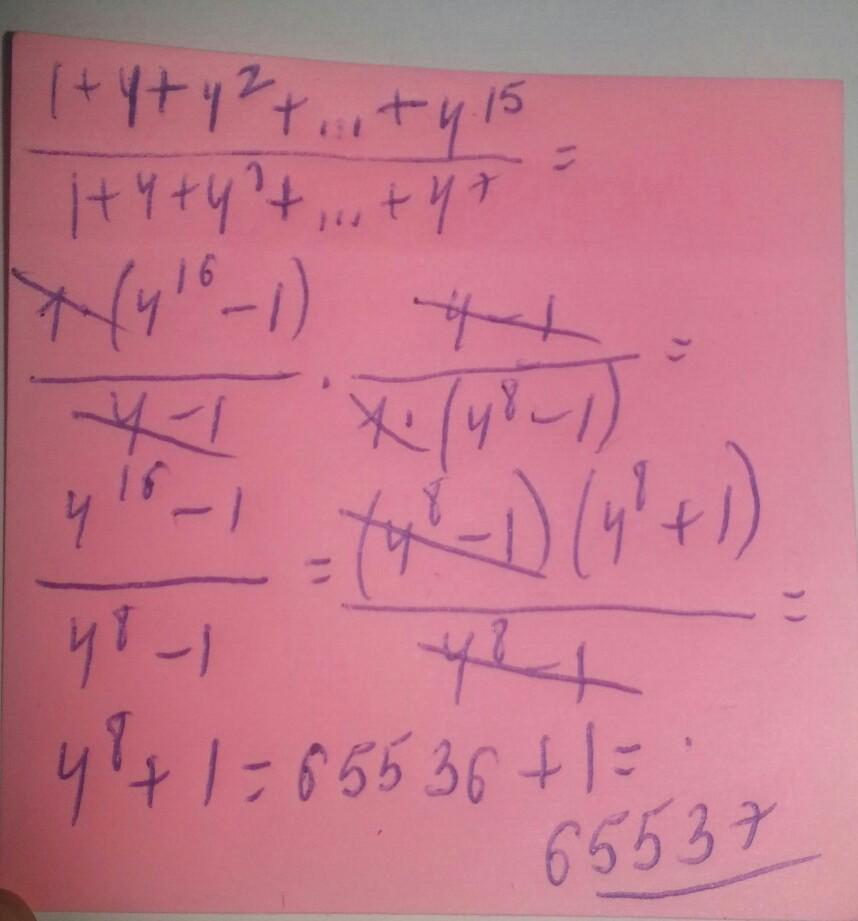 1+4+4²+...+4¹⁵
1+4+4²+...+4⁷ =
1·(4¹⁶-1) 4-1
4-1 · 1·(4⁸-1) =
4¹⁶-1 (4⁸-1)(4⁸+1)
4⁸-1 = 4⁸-1 =
4⁸+1=65536+1=
65537